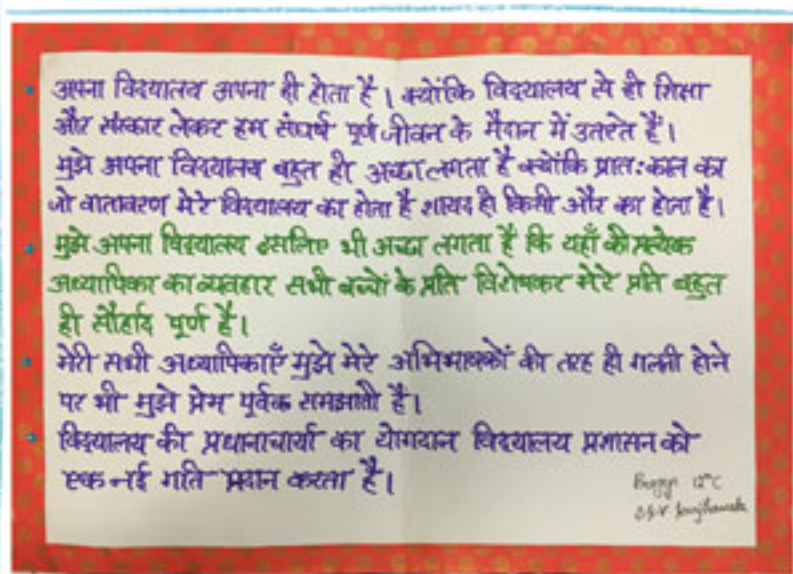 अपना विद्यालय अपना ही होता है। क्योंकि विद्यालय से ही शिक्षा
और संस्कार लेकर हम संघर्ष पूर्ण जीवन के मैदान में उतरते हैं।
मुझे अपना विद्यालय बहुत ही अच्छा लगता है क्योंकि प्रातःकाल का
जो वातावरण मेरे विद्यालय का होता है शायद ही किसी और का होता है।
मुझे अपना विद्यालय इसलिए भी अच्छा लगता है कि यहाँ की प्रत्येक
अध्यापिका का व्यवहार सभी बच्चों के प्रति विशेषकर मेरे प्रति बहुत
ही सौहार्द पूर्ण है।
मेरी सभी अध्यापिकाएँ मुझे मेरे अभिभावकों की तरह ही गलती होने
पर भी मुझे प्रेम पूर्वक समझाती है।
विद्यालय की प्रधानाचार्या का योगदान विद्यालय प्रशासन को
एक नई गति प्रदान करता है।
12th C